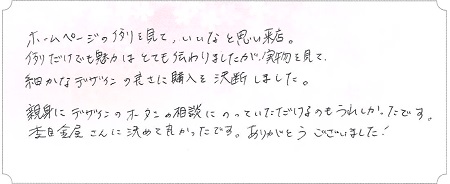 ホームページの例を見て、いいなと思い来店。
例だけでも魅力はとても伝わりましたが、実物を見て、
細かなデザインの良さに購入を決断しました。
親身にデザインのオーダンの相談にのっていただけるのもうれしかったです。
杢目金屋さんに決めて良かったです。ありがとうございました!